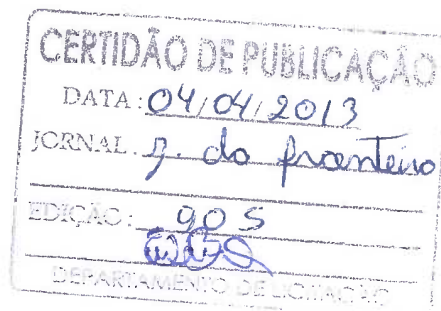 CERTIDÃO DE PUBLICAÇÃO
DATA: 04/04/2013
JORNAL: J. do
EDIÇÃO: 905
DEPARTAMENTO DE LICITAÇÃO